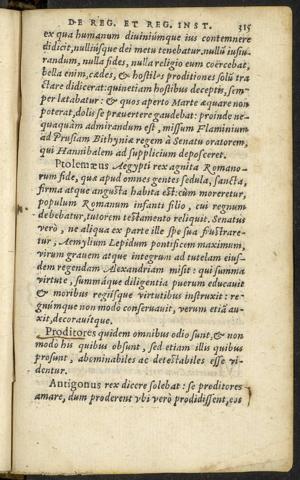 DE REG. ET REG. INST. 315
ex qua humanum diuinúmque ius contemnere
didicit, nulliúsque dei metu tenebatur, nullũ iusiu-
randum, nulla fides, nulla religio eum coërcebat,
bella enim, cædes, & hostiles proditiones solũ tra
ctare didicerat: quinetiam hostibus deceptis, sem-
per lætabatur: & quos aperto Marte æquare non
poterat, dolis se præuertere gaudebat: proinde ne-
quaquàm admirandum est, missum Flaminium
ad Prusiam Bithyniæ regem à Senatu oratorem,
qui Hannibalem ad supplicium deposceret.
Ptolemæus Aegypti rex agnita Romano-
rum fide, quæ apud omnes gentes sedula, sancta,
firma atque angusta habita est: cùm moreretur,
populum Romanum infanti filio, cui regnum
debebatur, tutorem testamento reliquit. Senatus
verò, ne aliqua ex parte ille spe sua frustrare-
tur, Aemylium Lepidum pontificem maximum,
virum grauem atque integrum ad tutelam eius-
dem regendam Alexandriam misit: qui summa
virtute, summáque diligentia puerum educauit
& moribus regiisque virtutibus instruxit: re-
gnúmque non modò conseruauit, verum etiã au-
xit, decorauitque.
Proditores quidem omnibus odio sunt, & non
modò his quibus obsunt, sed etiam illis quibus
prosunt, abominabiles ac detestabiles esse vi-
dentur.
Antigonus rex dicere solebat: se proditores
amare, dum proderent vbi verò prodidissent, eos